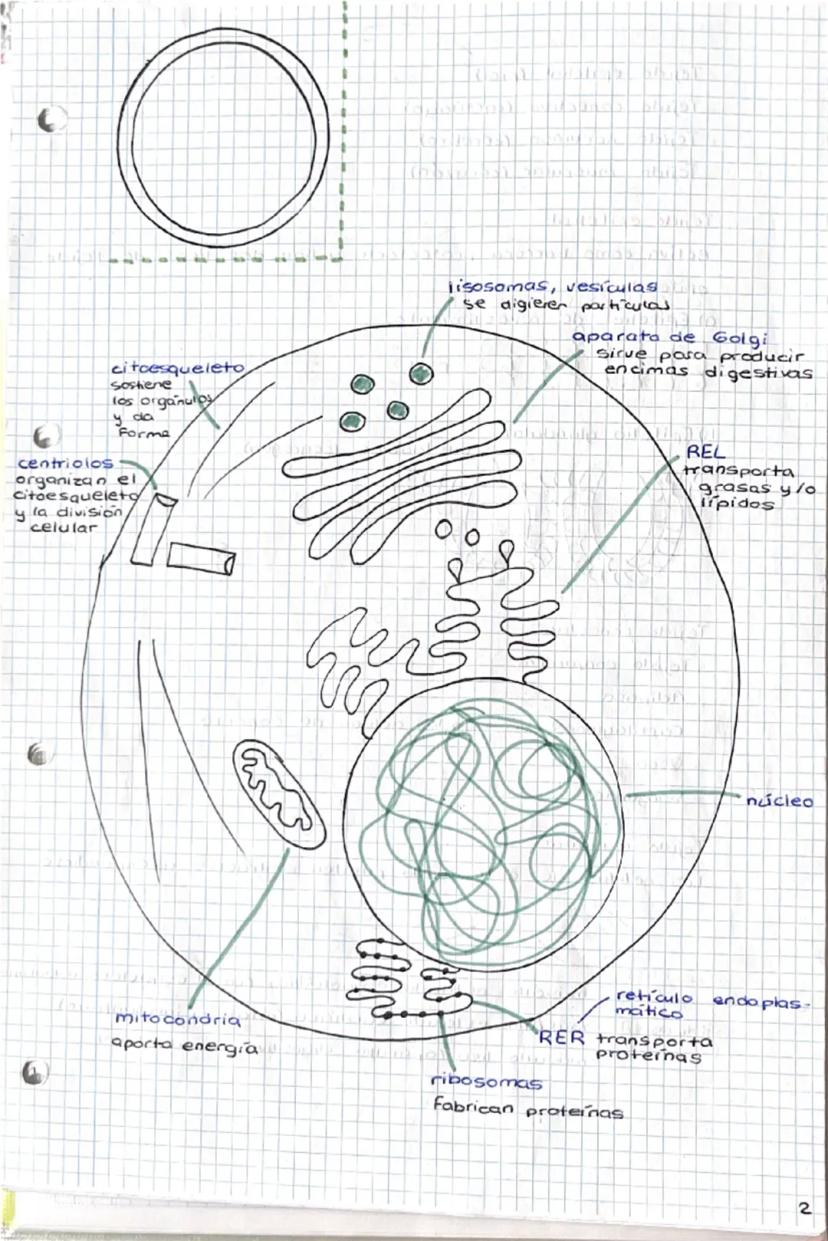 lisosomas, vesículas
se digieren partículas
aparato de Golgi
sirve para producir
encimas digestivas
citoesqueleto
sostiene
los orgánulos
y da
forma
centriolos
organizan el
citoesqueleto
y la división
celular
REL
transporta
grasas y/o
lípidos
núcleo
mitocondria
aporta energía
retículo endoplas-
mático
RER transporta
proteínas
ribosomas
fabrican proteínas
2